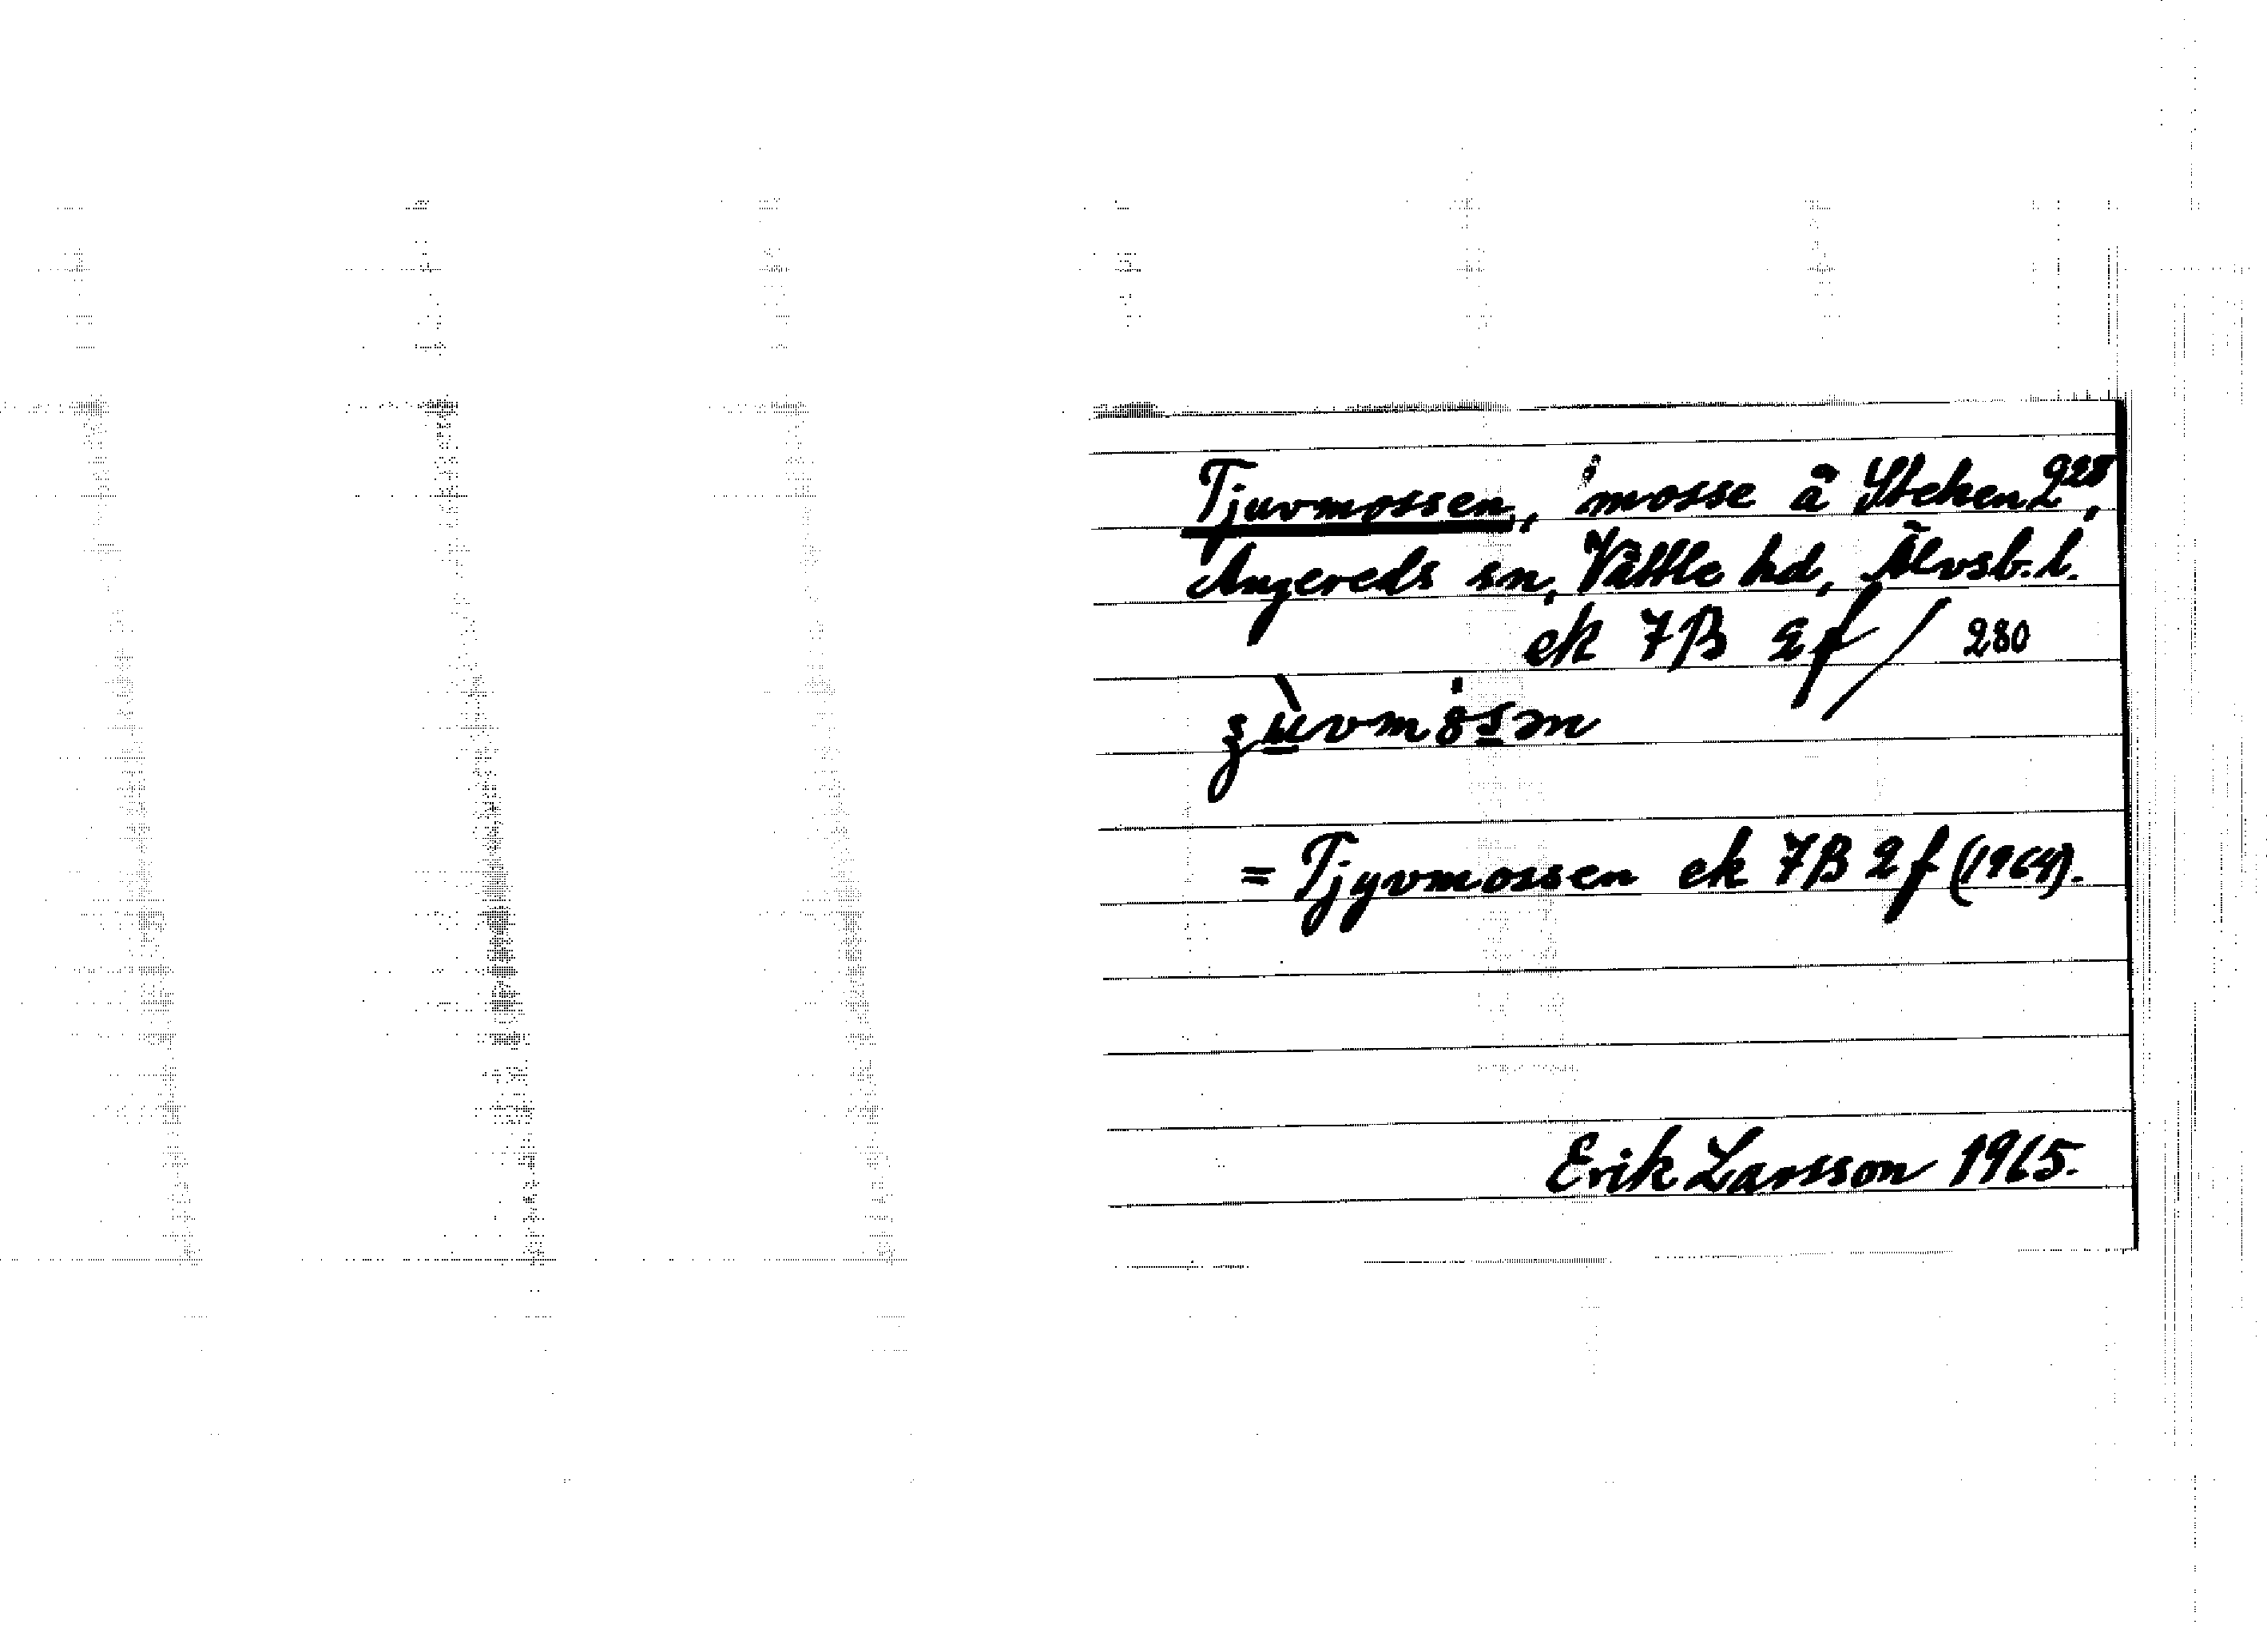 Tjuvmossen, mosse å Steken 2²²⁸,
Angereds sn, Vättle hd, Älvsb. l.
ek 7B 2f / 280
= Tjyvmossen ek 7B 2f (1964).
Erik Larsson 1965.